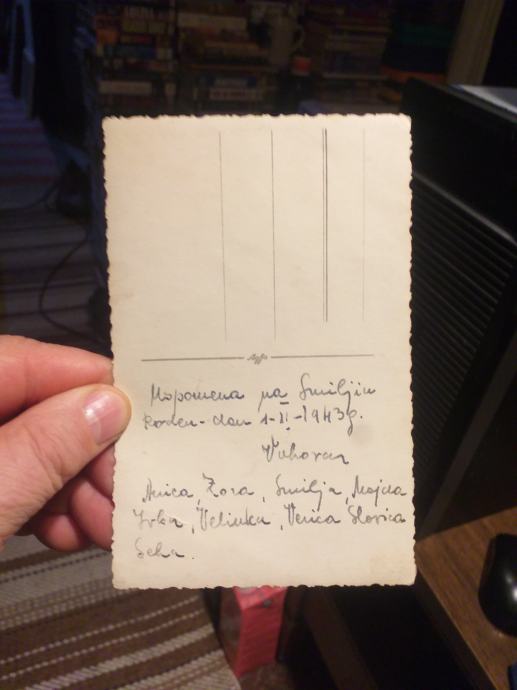 Uspomena na Smiljin
rođen-dan 1-II-1943g.
Vukovar
Anica, Zora, Smilja, Majda
Velinka, Verica Slavica
Seka.